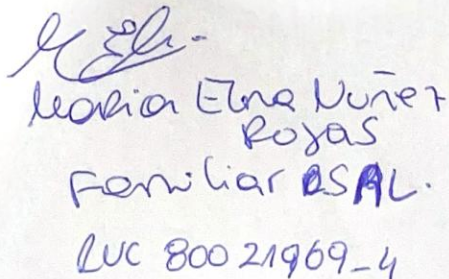 Maria Elna Nuñez
Rojas
Familiar SRL.
RUC 80021969-4